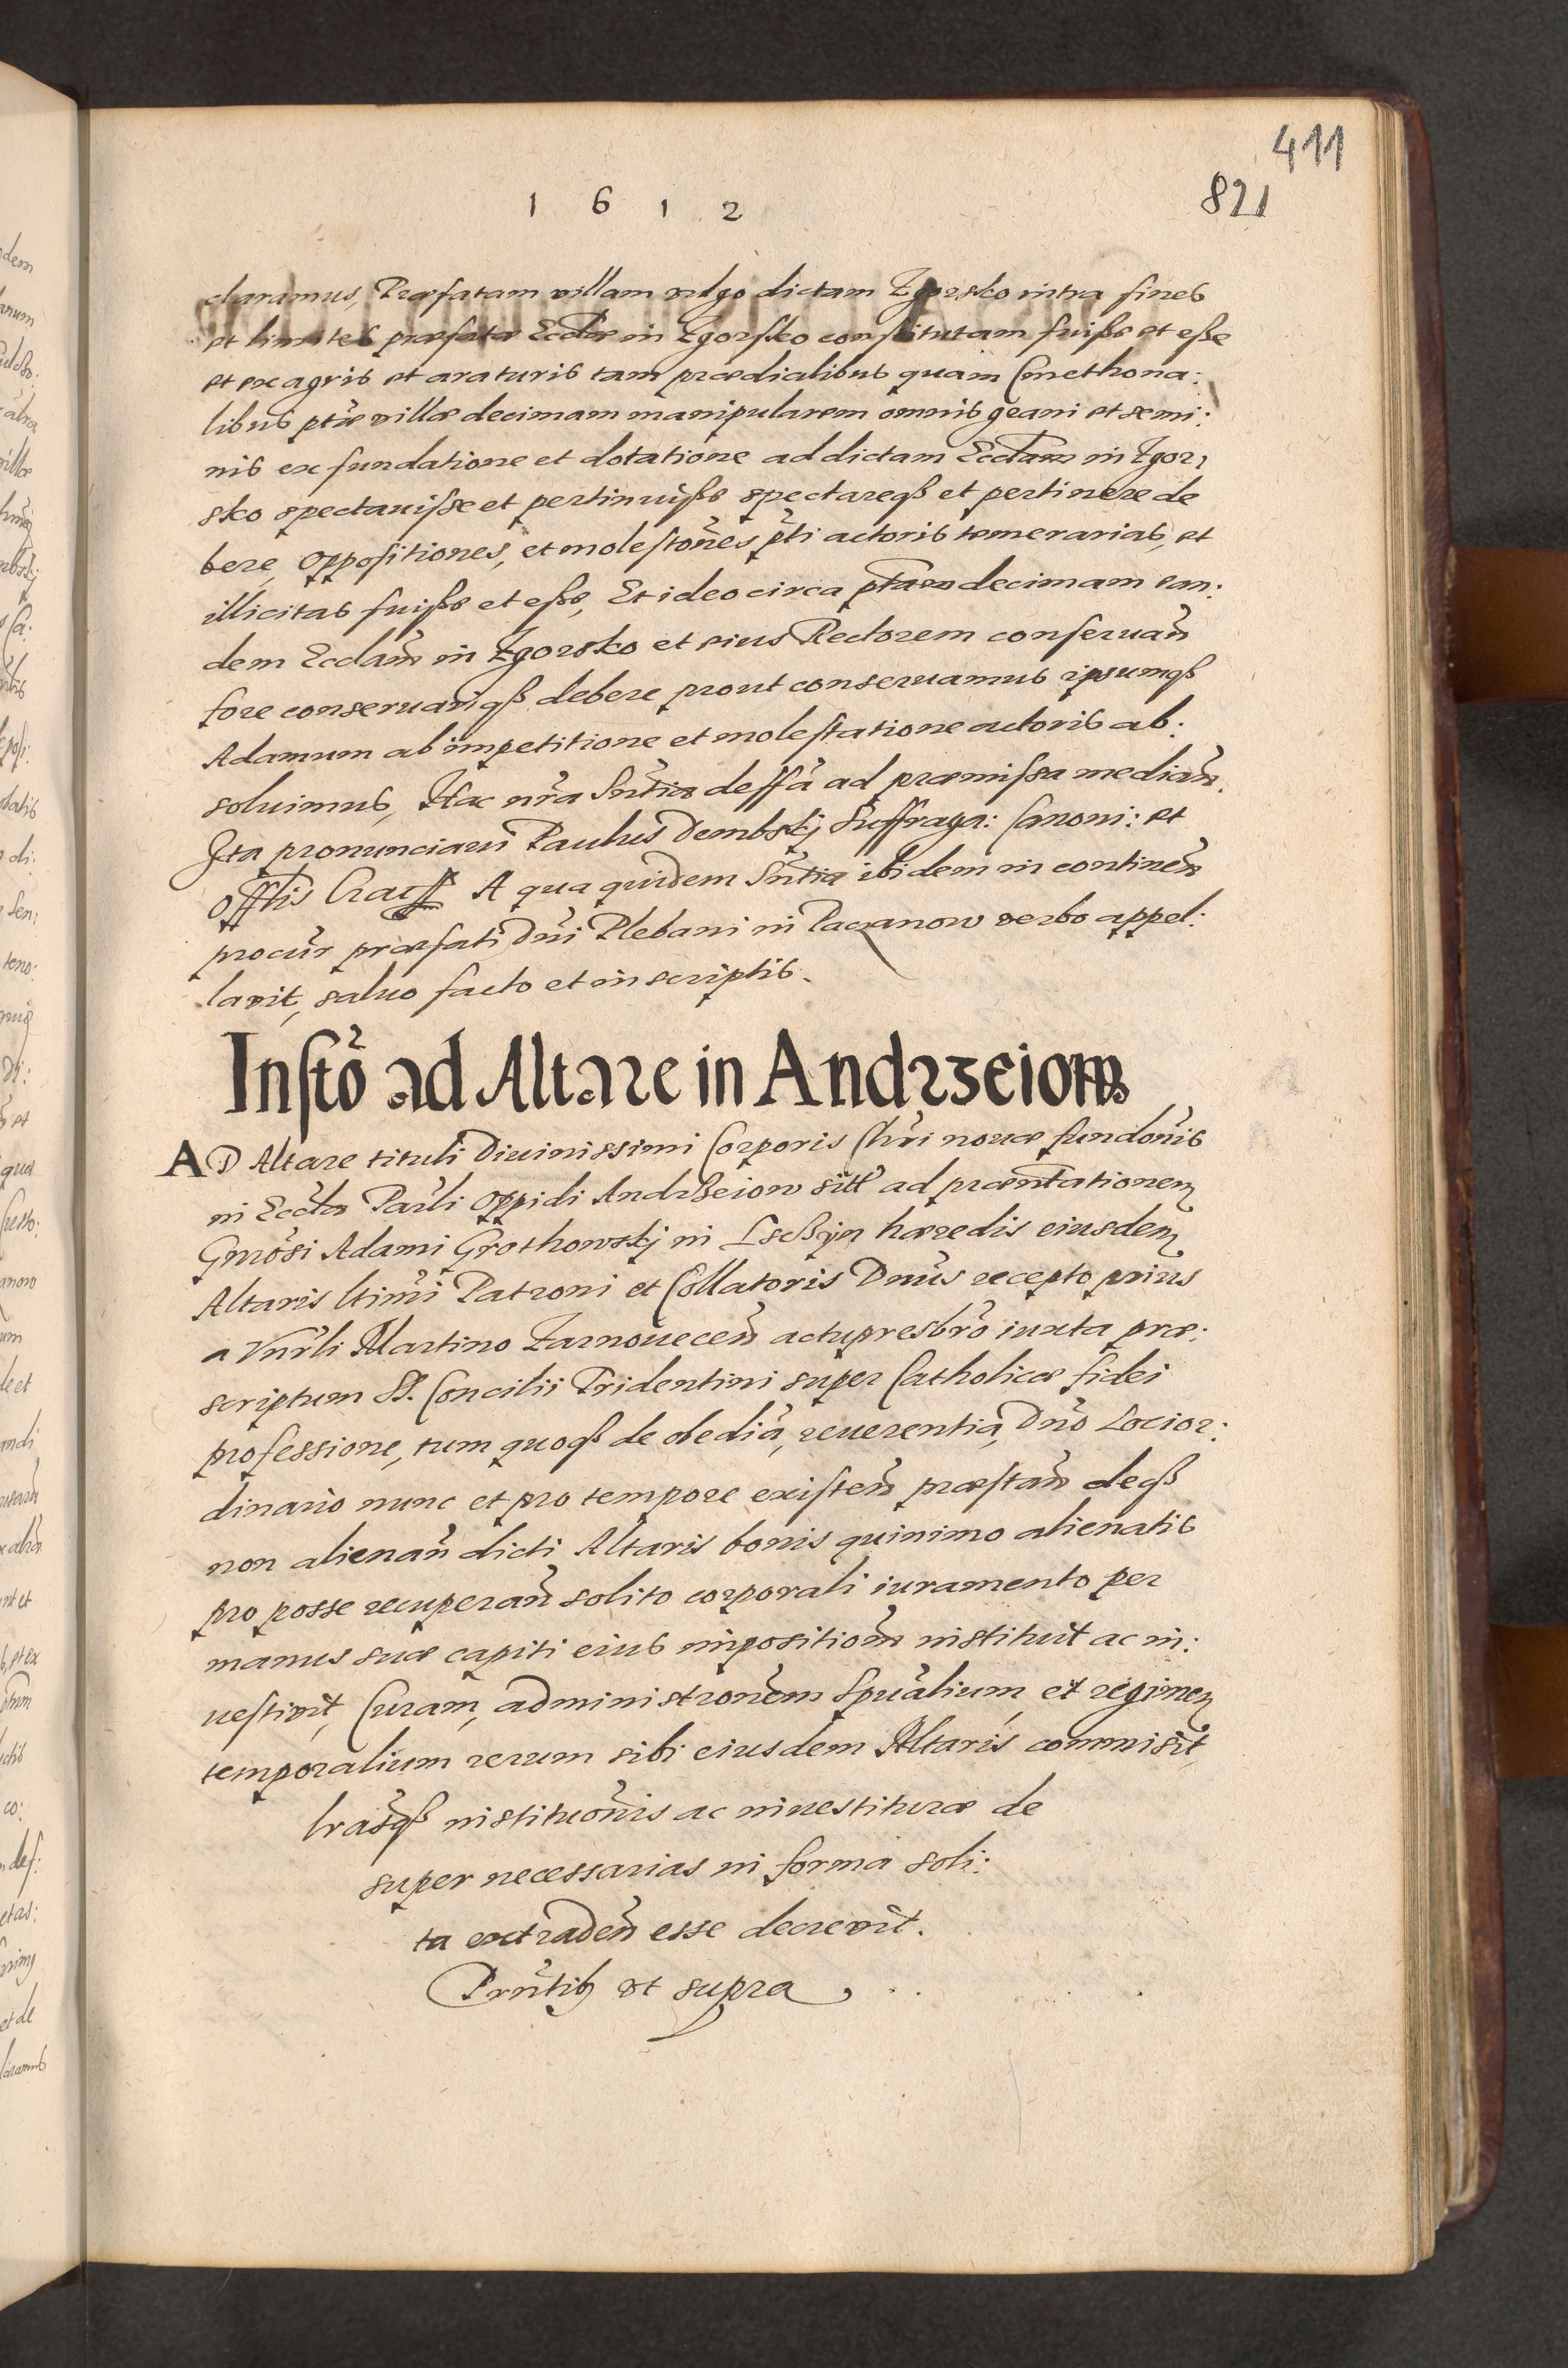 411
821
1 6 1 2
claramus, Præfatam villam vulgo dictam Zgorsko intra fines
et limites præfatæ Eccłiæ in Zgorsko constitutam fuisse et esse
et ex agris et araturis tam prædialibus quam Cmethona:
libus ptæ villæ decimam manipularem omnis grani et semi:
nis ex fundatione et dotatione ad dictam Eccłiam in Zgor:
sko spectauisse et pertinuisse spectareqз et pertinere de
bere, oppositiones, et molestōnes p̃ti actoris temerarias, et
illicitas fuisse et esse, Et ideo circa p̃tam decimam ean:
dem Eccłiam in Zgorsko et eius Rectorem conseruan̄
fore conseruariqз debere prout conseruamus ipsumqз
Adamum ab impetitione et molestatione actoris ab:
soluimus, Hac nr̃a Sñtia deffā ad præmissa median̄.
Ita pronunciaui Paulus Dembskj Suffraga: Canoni: et
Offlis Cracß A qua quidem Sñtia ibidem in continen̄
procur̃ præfati Dñi Plebani in Paczanow verbo appel:
lavit, saluo facto et in scriptis.
Instō ad Altare in Andrzeiow
AD Altare tituli Diuinissimi Corporis Chri nouæ fundōnis
in Eccła Parłi oppidi Andrzeiow sitt̃ ad præntationem
Gnrosi Adami Grothowskj in hæredis eiusdem
Altaris ltimi Patroni et Collatoris Dnus recepto prius
a Vnrli Martino Zarnouecen̄ actupresbr̃o iuxta præ:
scriptum SS. Concilii Tridentini super Catholicæ fidei
professione, tum quoqз de obediā, reuerentia, Dño Locior:
dinario nunc et pro tempore existen̄ præstan̄ deqз
non alienan̄ dicti Altaris bonis quinimo alienatis
pro posse recuperan̄ solito corporali iuramento per
manus suæ capiti eius impositiom̄ instituit ac in:
uestiuit, Curam, administronem Spũalium, et regimen
temporalium rerum sibi eiusdem Altaris commisit,
lrasqз institutiōnis ac inuestituræ de
super necessarias in forma soli:
ta extraden̄ esse decreuit.
Prñtibз vt supra